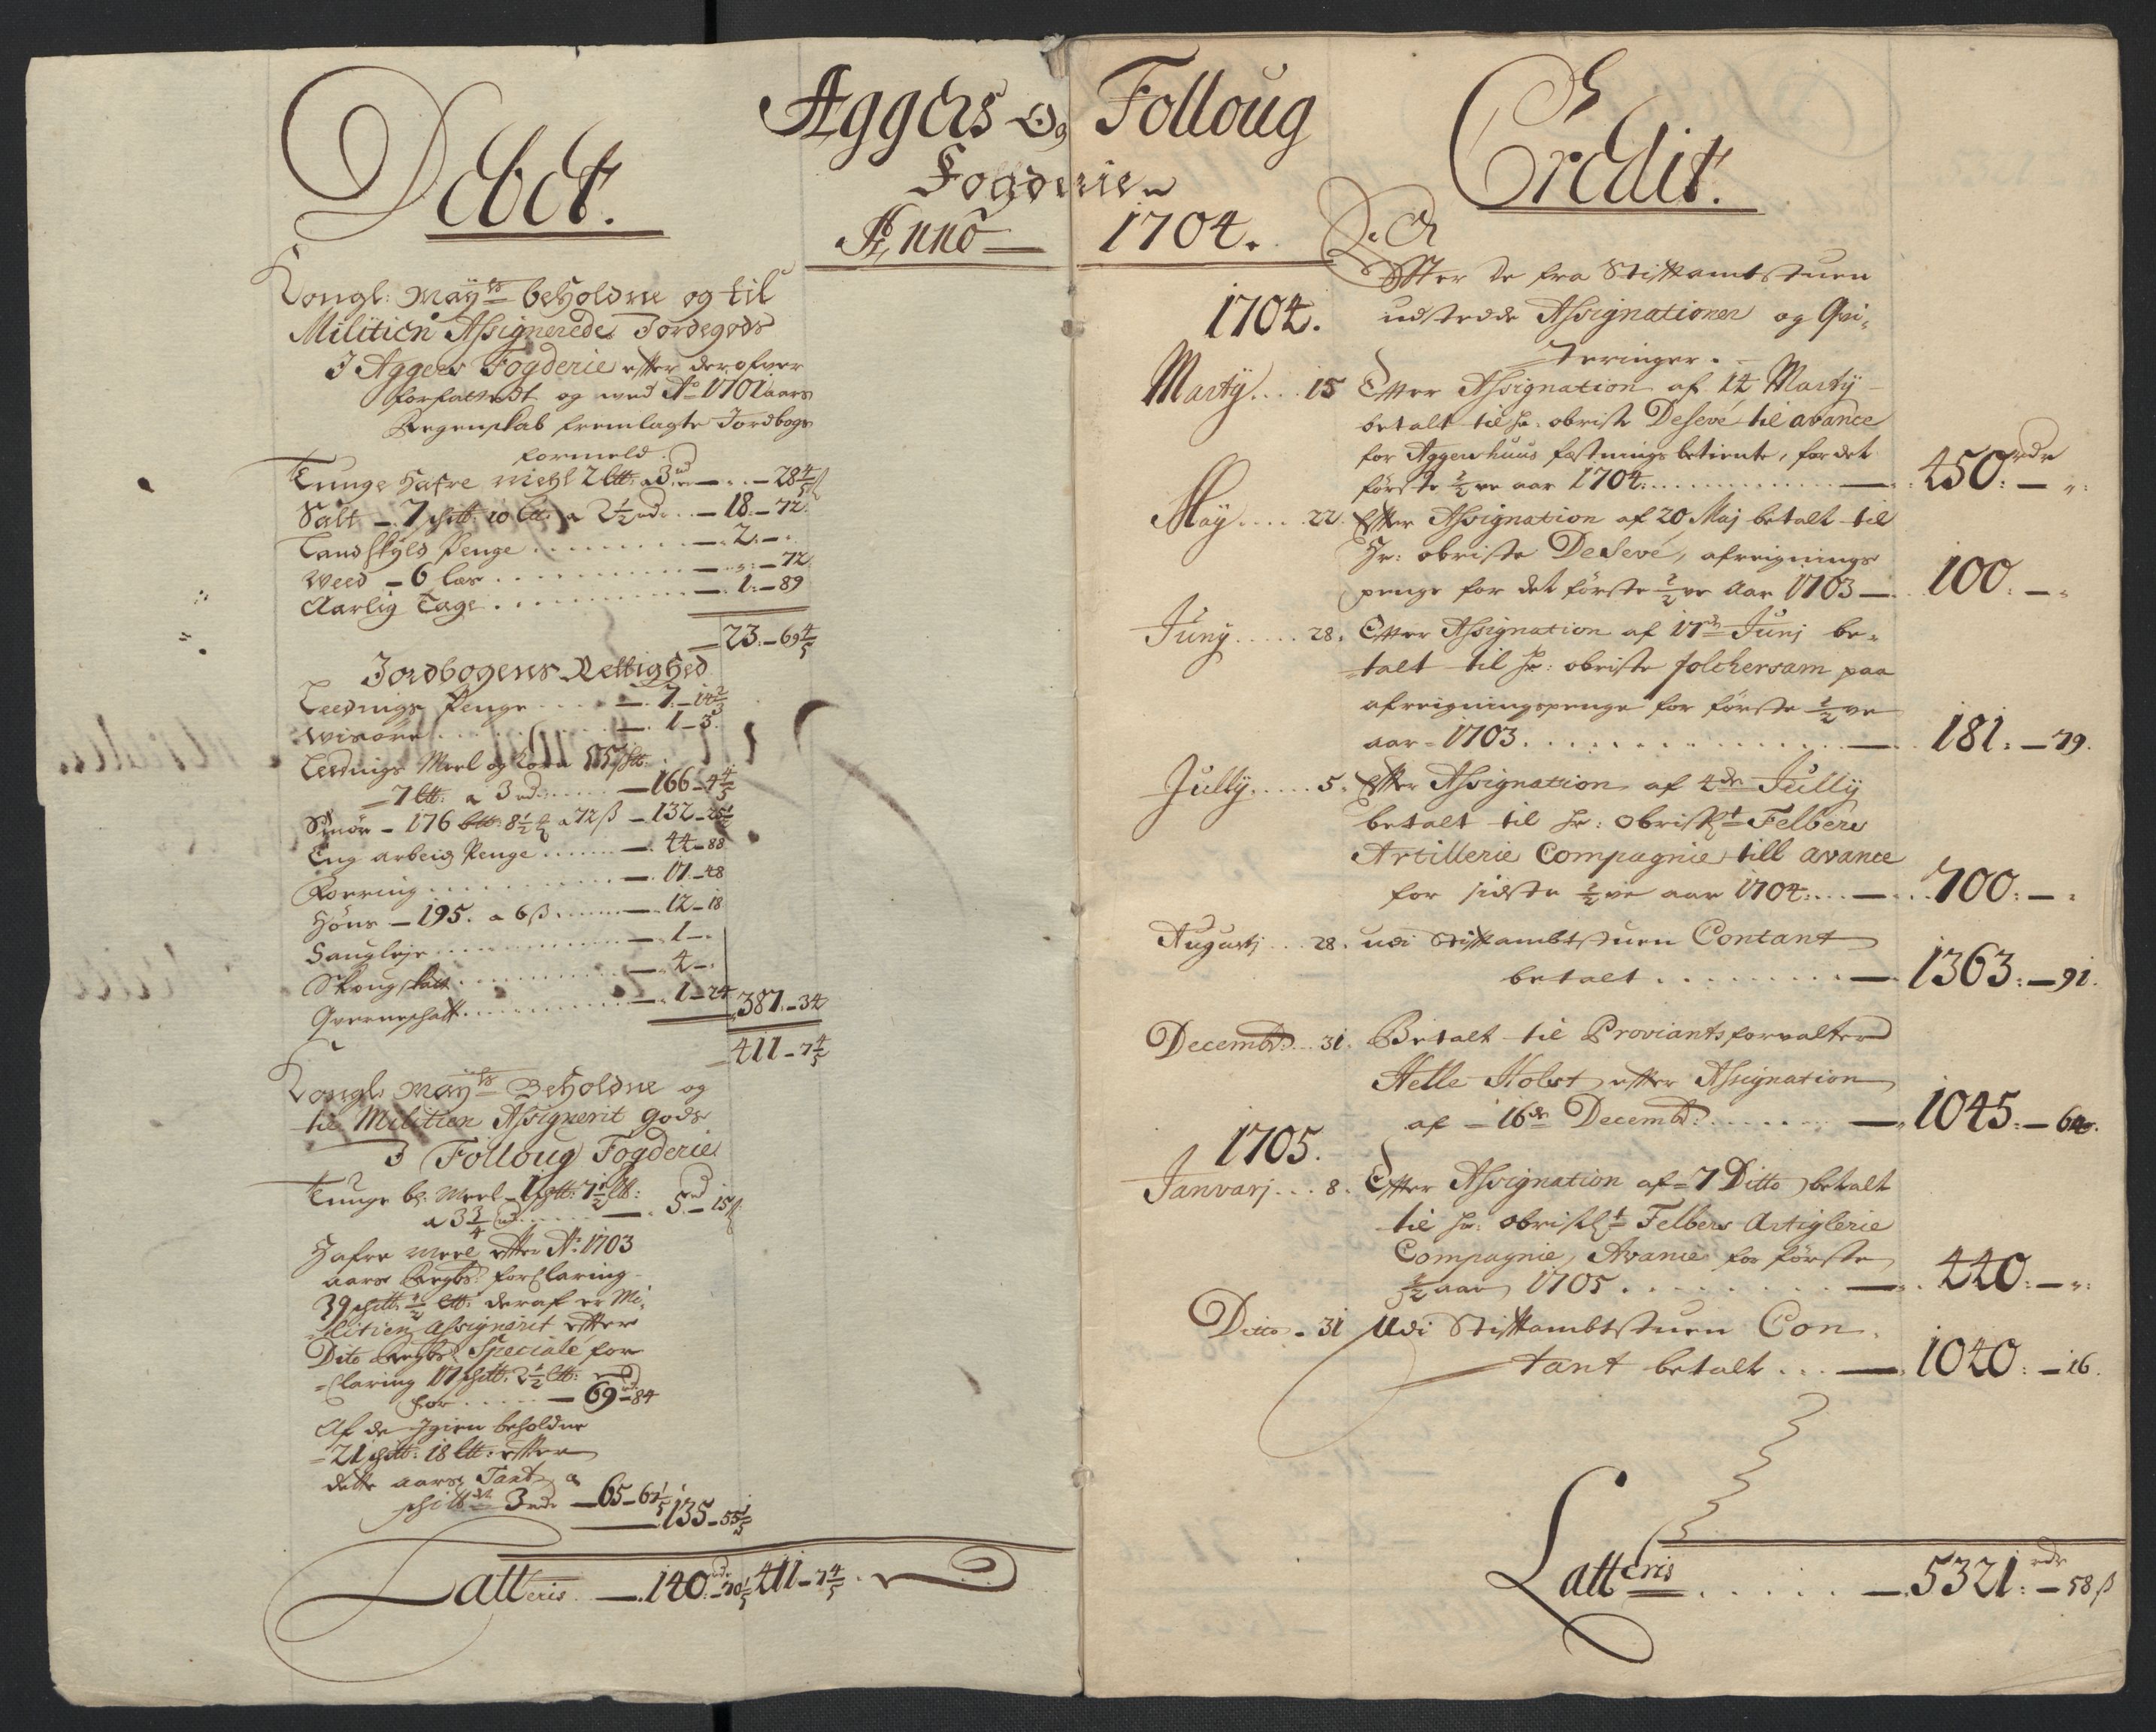 Debet.
Aggers Og Folloug
Fogderier
Anno 1704.
Kongl: Maÿts beholdne og til
Militien Assignerede Jordegods
I Aggers Fogderie efter derofver
forfattet og med Ao 1701 aars
Regenskab fremlagte Jordbogs
formeld.
Tunge Hafre Mehl 2 ltt: a 3 rd — 28 4/5 ß
Salt — 7 schtt: 10 ltt: a 2 1/2 rd — 18 — 72
Landskyld Penge — 2 —
Weed — 6 læs — 72
Aarlig Tage — 1 — 89
23 — 69 4/5
Jordbogens Rettighed
Leednigs Penge — 7 — 14 2/3
Wisøre — 1 — 3
Leednigs Meel og Korn 55 schtt:
7 ltt: a 3 rdr — 166 — 4 4/5
Smør — 176 8 1/2 a 72 ß — 132 — 25 1/2
Eng arbeids Penge — 44 — 88
Foering — 17 — 48
Høns — 195. a 6 ß — 12 — 18
Saugleje — 1 —
Skougskatt — 4 —
Qverneschatt — 1 — 24
387 — 34
411 — 7 4/5
Kongl: Maÿts Beholdne og
til Militien Assignerit gods
I Folloug Fogderie
Tunge bl: Meel — 1 schtt: 7 1/2 ltt:
a 3 3/4 rd — 5 — 15 ß
Hafre Meel efter Ao 1703
aars Regbs: forklaring
39 schtt: 1/2 ltt: deraf er Mi-
litien Assignerit efter
Dito Regbs: Speciale for
klaring 17 schtt: 2 1/2 ltt:
for — 69 rd — 84
Af de Igien beholdne
21 schtt: 18 ltt: efter
dette aars Taxt a
schtt: 3 rdr — 65 — 67 1/5
135 — 55 1/5
Latteris — 140 rdr — 70 1/5 411 — 7 4/5
Credit.
Per
Efter de fra Stiftamtstuen
1704. udstedde Assignationer og Qvi-
teringer.
Martÿ 15 Efter Assignation af 14 Martÿ
betalt til Hr. obrist DeSeve til avance
for Aggershuus fæstnings betiente, for det
første 1/2 ve aar 1704. — 450 rdr —
Maÿ 22. Efter Assignation af 20 Maj betalt til
Hr: obriste DeSeve, afreignings
penge for det første 1/2 ve Aar 1703 — 100: —
Junÿ 28. Efter Assignation af 17de Junj be-
talt til Hr: obriste Jolchersam paa
afreigningspenge for første 1/2 ve
aar 1703 — 181: — 79.
Jullÿ 5. Efter Assignation af 4de Jullÿ
betalt til Hr: Obristl:t Felbers
Artillerie Compagnie till avance
for sidste 1/2 ve aar 1704 — 700: —
Augustj 28. udi Stiftambtstuen Contant
betalt — 1363: — 91.
Decembr: 31. Betalt til Proviantsforvalter
Helle Holst efter Assignation
af 16de Decembr: — 1045: — 64.
1705.
Janvarj 8. Efter Assignation af 7 Ditto betalt
til Hr: obristl:t Felbers Artiglerie
Compagnie, Avance for første
1/2 aar 1705 — 440: —
Ditto 31 Udi Stiftambtstuen Con-
tant betalt — 1040: — 16.
Latteris — 5321: rdr — 58 ß